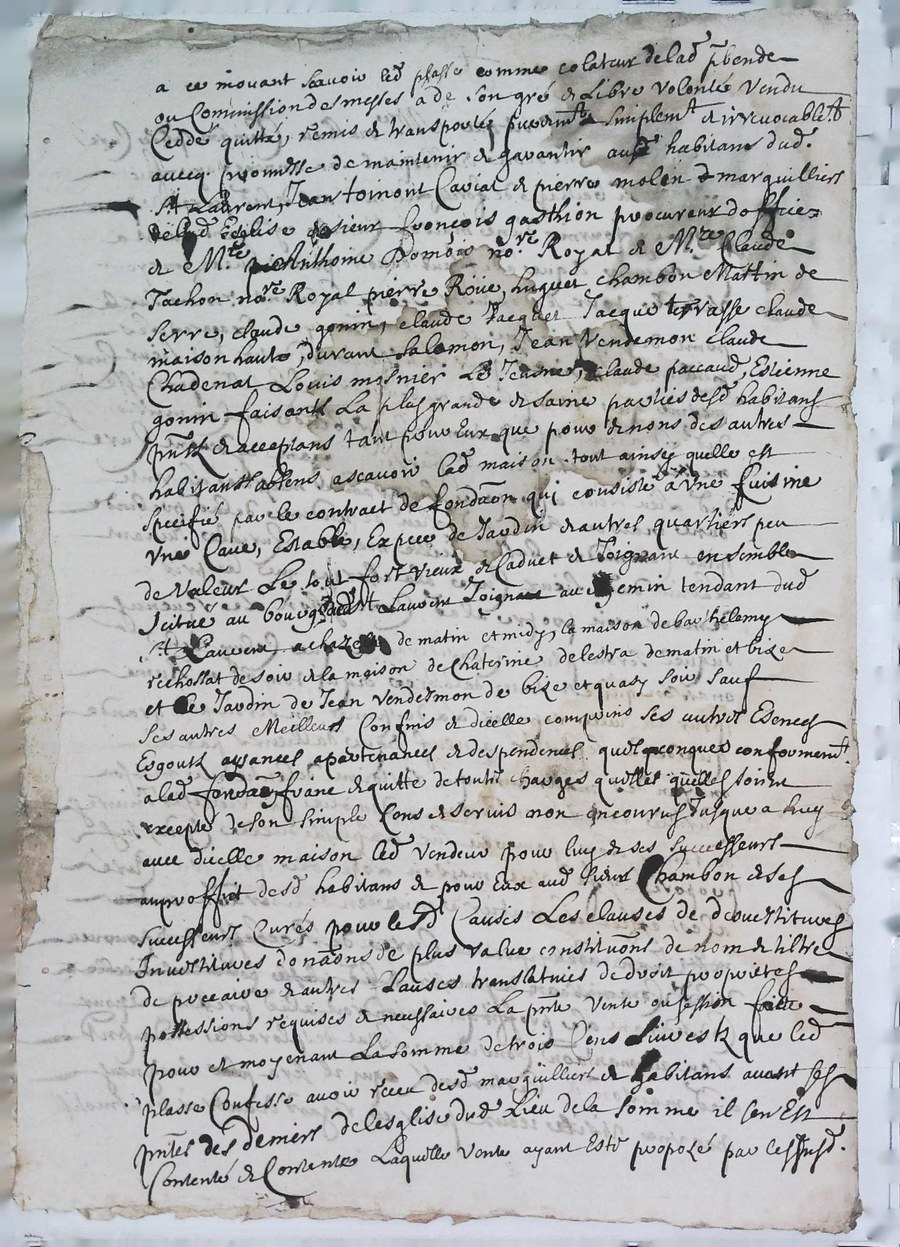 a ce mouant scavoir led plasse comme colateur de lad pbende
ou Commission des messes a de son gré & libre volonté vendu
Ceddé quitté, remis & transportés purem^t & simplem^t & irrevocable^t
avecq promesse de maintenir & garantir ausd habitans dud.
S^t Laurent, Jean toinont Caviat & pierre molin marguilliers
de lad Eglise sieur françois gasthion procureur doffice
& M^re Anthoine no^re Royal & M^re Claude
Tachon no^re Royal pierre Roüe, huguet Chambon Mattin de
Serre, claude gonin, claude Jacquet Jacque terrasse claude
maison haute, durant Salomon, Jean Vendemon Claude
Chadenat Louis mosnier Le Jeune, claude paccaud, Estienne
gonin faisantz La plus grande & saine parties desd habitans
pntz & acceptans tant pour Eux que pour & nons des autres
habitans absens ascavoir lad maison tout ainsy quelle est
specifié par le contract de fondaon qui consiste a vne cuisine
vne Cave, Estable, Expece de Jardin & autres quartiers peu
de Valeur Le tout fort vieux & Caduct & Joignant ensemble
scitué au bourg dud S^t Laurent Joignant au chemin tendant dud
S^t Laurent a chazelle de matin et midy, la maison de barthelemy
rechossat de soir & la maison de Chaterine delestra de matin et bize
et le Jardin de Jean Vendesmon de bize et quasy soir sauf
ses autres Meilleurs Confins & dicelle comprins ses autres
Esgoutz aysances apartenances & despendences quelqconques conformem^t
a lad fondaon franc & quitte de toutes charges quelles quelles soient
excepté de son simple Cens & servis non encourus Jusque a huy
avec dicelle maison led Vendeur pour luy & ses successeurs
auproffict desd habitans & pour Eux aud sieur Chambon & ses
successeurs Curés pour lesd Causes Les clauses de devestitures
Investitures donaons de plus value constituons de nom & tiltre
de precaire & autres Clauses translatives de droit proprietes
possessions requises & necessaires La pnte Vente ou session faite
pour et moyenant La somme de trois Cens Livres que led
plasse Confesse avoir receu desd marguilliers & habitans avant ses
pntes des deniers de leglise dud Lieu de la somme il sen Est
Contenté & Contente Laquelle Vente ayant Esté propozé par les susd.